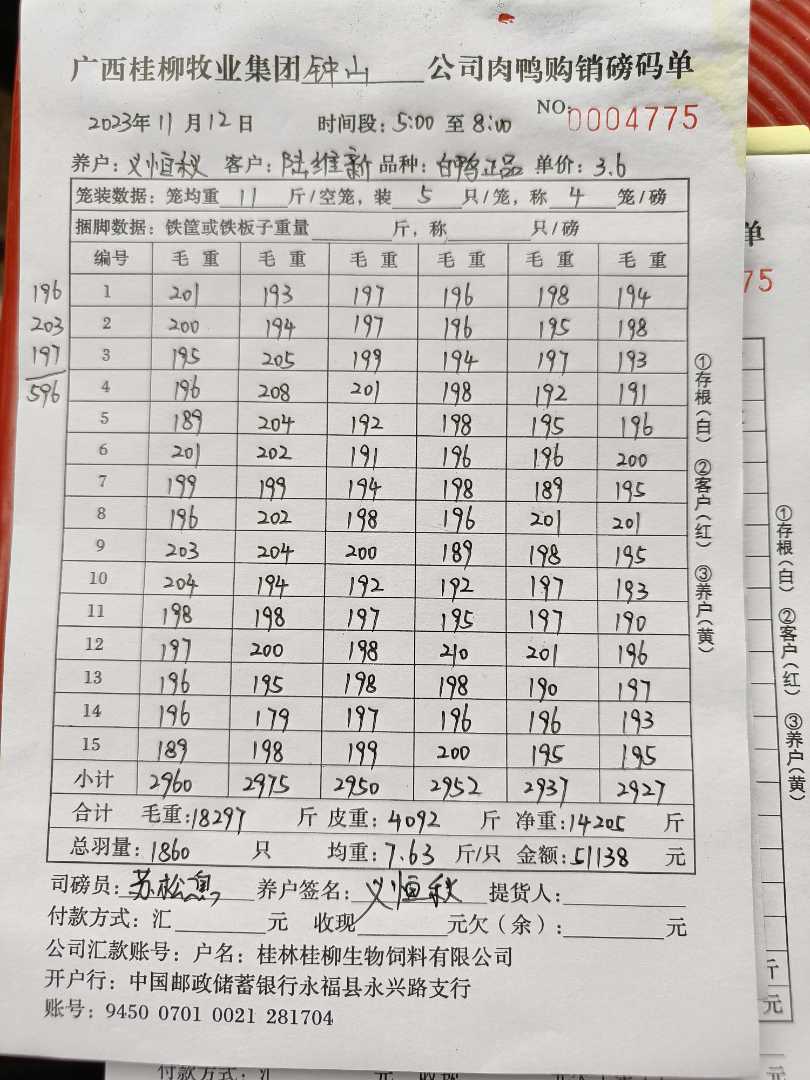 广西桂柳牧业集团钟山公司肉鸭购销磅码单
NO:0004775
2023年11月12日 时间段:5:00至8:00
养户:义恒秋 客户:陆维新 品种:白鸭正品 单价:3.6
笼装数据:笼均重11斤/空笼,装5只/笼,称4笼/磅
捆脚数据:铁筐或铁板子重量____斤,称____只/磅
编号 毛重 毛重 毛重 毛重 毛重 毛重
1 201 193 197 196 198 194
2 200 194 197 196 195 198
3 195 205 199 194 197 193
4 196 208 201 198 192 191
5 189 204 192 198 195 196
6 201 202 191 196 196 200
7 199 199 194 198 189 195
8 196 202 198 196 201 201
9 203 204 200 189 198 195
10 204 194 192 192 197 193
11 198 198 197 195 197 190
12 197 200 198 210 201 196
13 196 195 198 198 190 197
14 196 179 197 196 196 193
15 189 198 199 200 195 195
小计 2960 2975 2950 2952 2937 2927
合计 毛重:18297斤 皮重:4092斤 净重:14205斤
总羽量:1860只 均重:7.63斤/只 金额:51138元
司磅员:苏松 养户签名:义恒秋 提货人:
付款方式:汇____元 收现____元欠(余):____元
公司汇款账号:户名:桂林桂柳生物饲料有限公司
开户行:中国邮政储蓄银行永福县永兴路支行
账号:9450 0701 0021 281704
196
203
197
596
①存根(白) ②客户(红) ③养户(黄)
单
75
①存根(白) ②客户(红) ③养户(黄)
斤
元
付款方式:汇